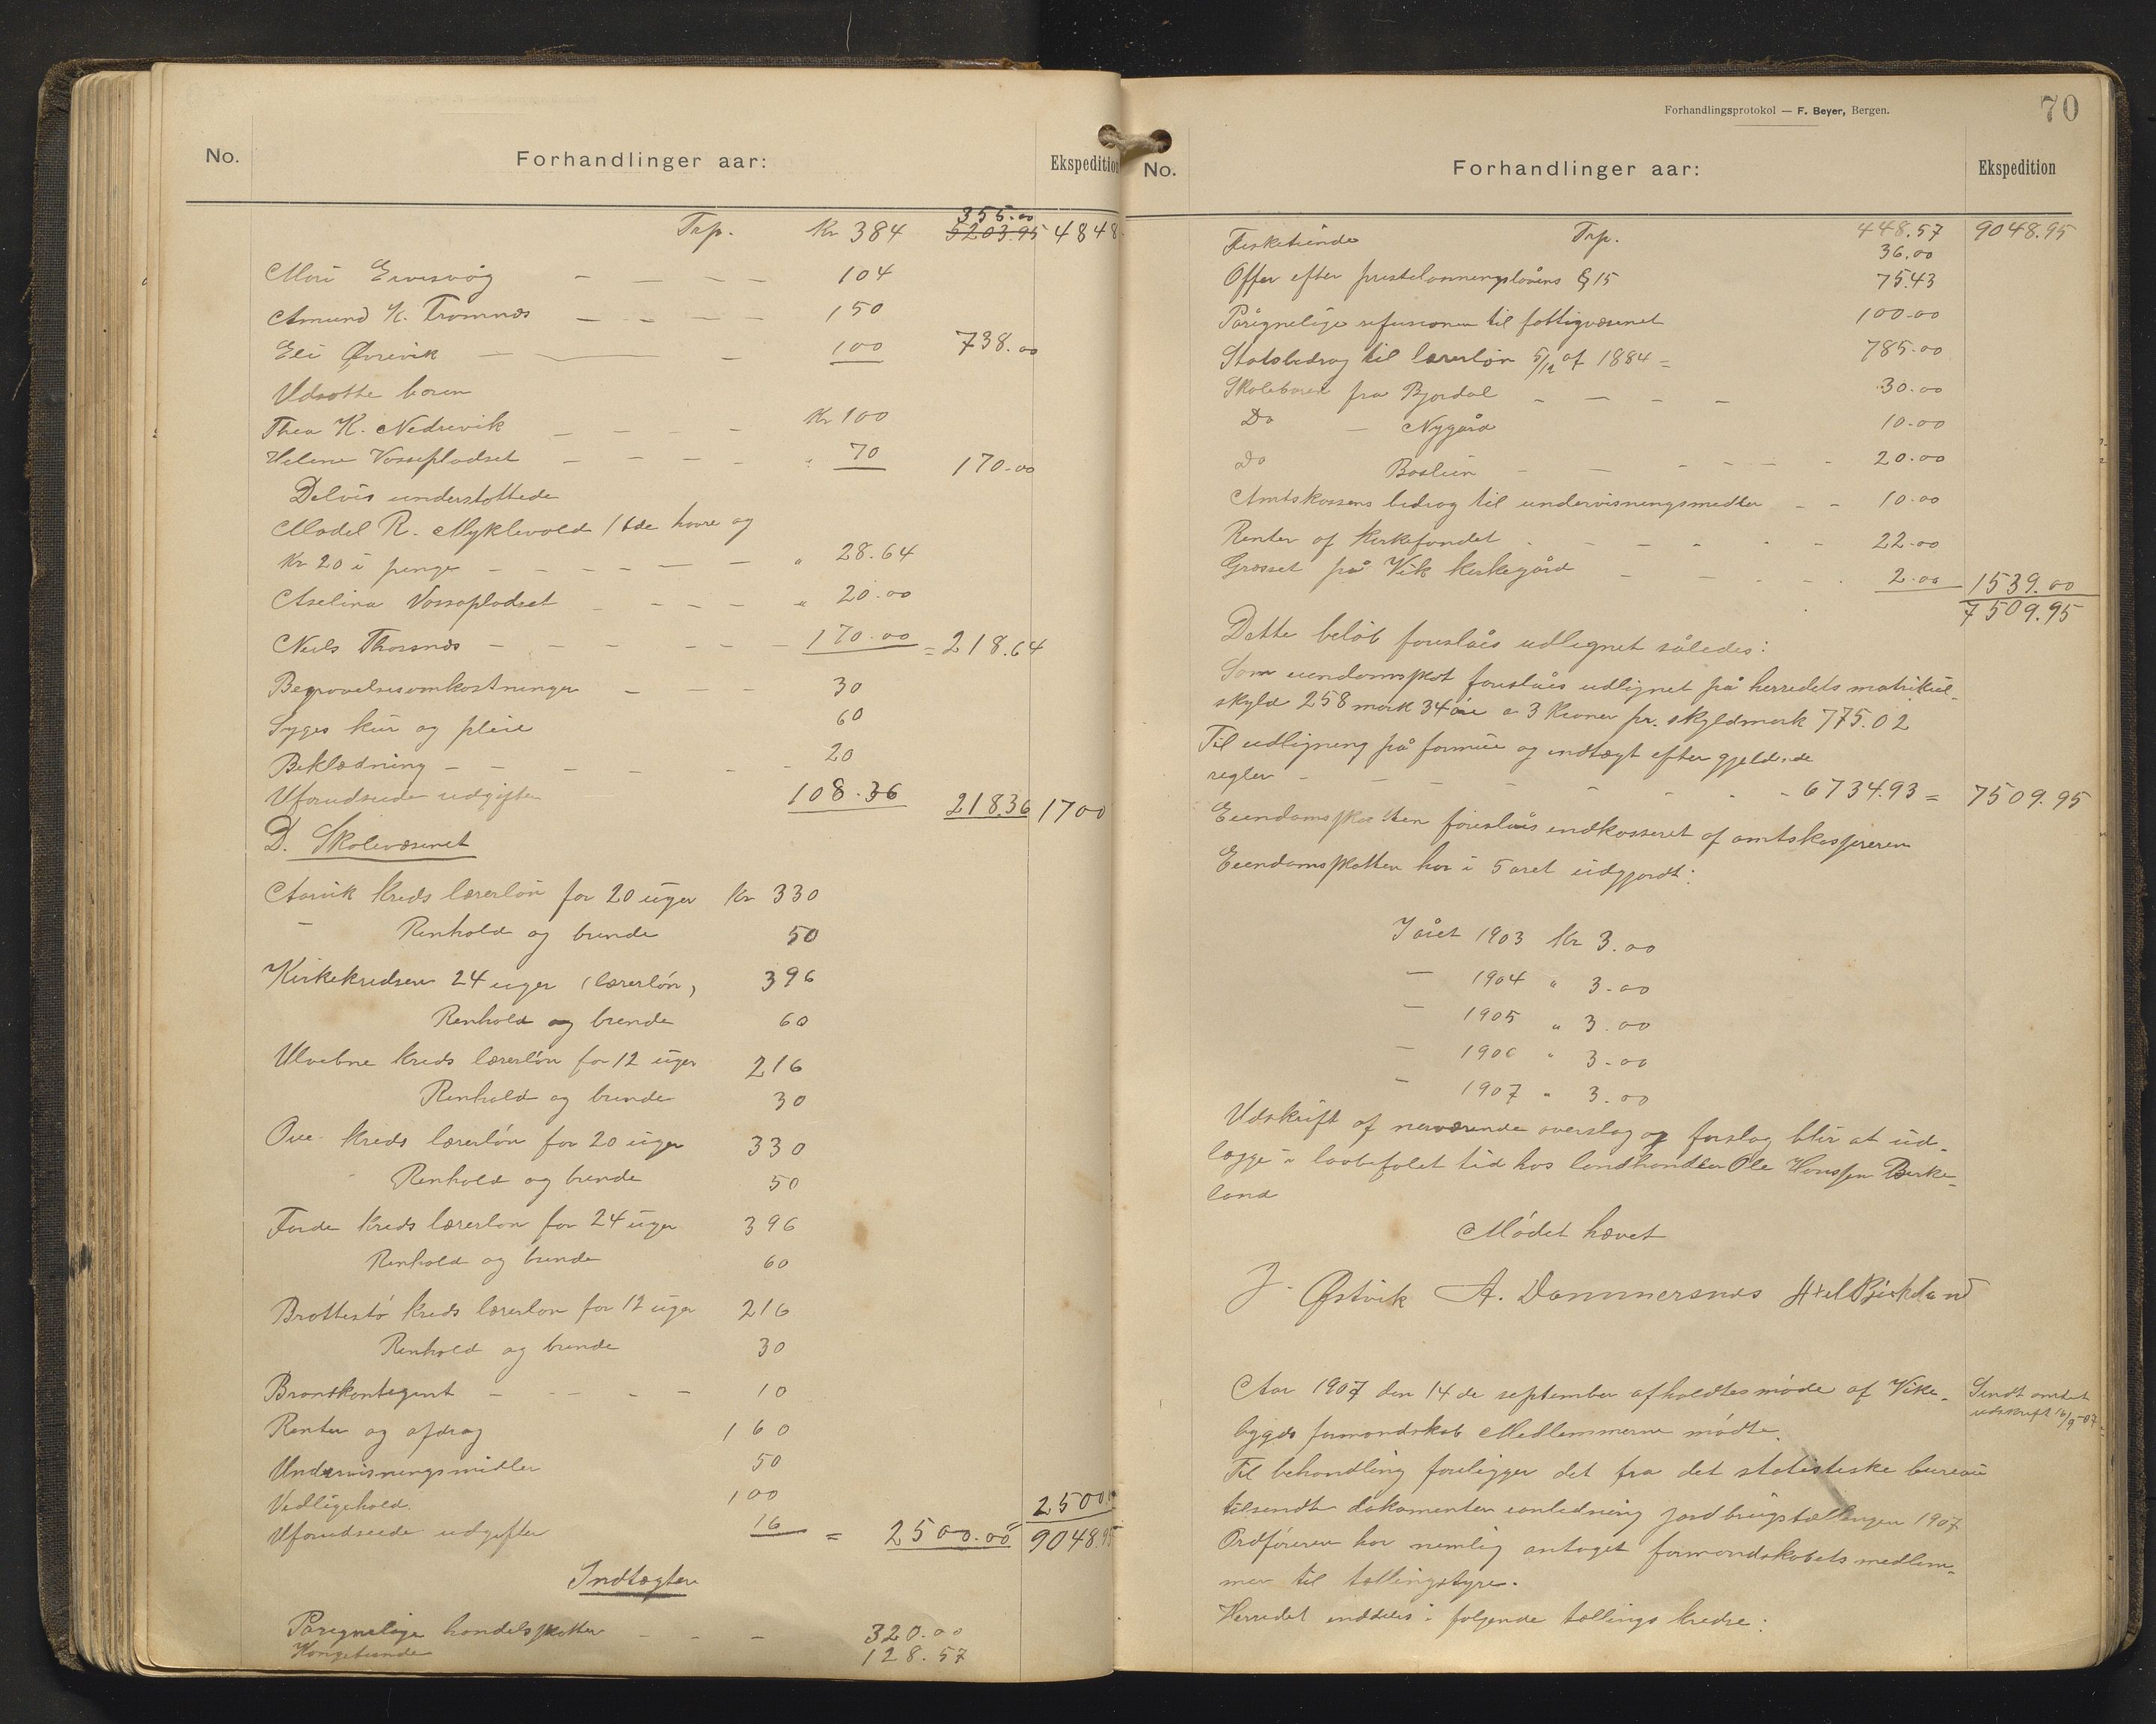 No. Forhandlinger aar: Ekspedition
Trp. Kr 384 355.00 5203.95 4848
Mari Eivisvåg — — — — 104
Amund K. Tromnæs — — — — 150
Eli Øvrevik — — — 100 738.00
Udsatte boren
Thea K. Nedrevik — — — — Kr 100
Helene Vassepladset — — — — " 70 170.00
Delvis understøttede
Madel R. Myklevold 1 tde havre og
Kr 20 i penge — — — — — — " 28.64
Aselina Vassepladset — — — — " 20.00
Neils Thorsnæs — — — — — — 170.00 = 218.64
Begravelsesomkostninger — — — 30
Syges kur og pleie 60
Beklædning — — — — — 20
Uforudseede udgifter 108.36 218.36 1700
D. Skolevæsenet
Aarvik kreds lærerløn for 20 uger Kr 330
— Renhold og brende 50
Kirkekredsen 24 uger (lærerløn) 396
Renhold og brende 60
Ulvebne kreds lærerløn for 12 uger 216
Renhold og brende 30
Øve kreds lærerløn for 20 uger 330
Renhold og brende 50
Førde kreds lærerløn for 24 uger 396
Renhold og brende 60
Brottestø kreds lærerløn for 12 uger 216
Renhold og brende 30
Brandkontegent — — — — 10
Renter og afdrag 160
Undervisningsmidler 50
Vedligehold 100 2500.00
Uforudseede udgifter 16 = 2500.00 9048.95
Indtægter
Påregnelige handelsskatter — — — 320.00
Kongetiende 128.57
Forhandlingsprotokol — F. Beyer, Bergen. 70
No. Forhandlinger aar: Ekspedition
Trp. 448.57 9048.95
Fisketiende 36.00
Offer efter prestelønningslovens § 15 75.43
Påregnelige refusioner til fattigvæsenet 100.00
Statsbedrag til lærerløn 5/12 af 1884 = 785.00
Skoleboren fra Bjordal — — — — 30.00
Do — Nygård 10.00
Do Baslien — — — — — 20.00
Amtskassens bedrag til undervisningsmedler — — 10.00
Renter af Kirkefondet — — — — — 22.00
Græsset på Vik kirkegård — — — — 2.00 1539.00
7509.95
Dette beløb foreslåes udlegnet således:
Som eiendomsskat foreslåes udlignet på herredets matrikul-
skyld 258 mark 34 øre a 3 Kroner pr. skyldmark 775.02
Til udligning på formue og indtægt efter gjeldende
regler — — — — — — — 6734.93 = 7509.95
Eiendomsskatten foreslåes indkasseret af amtskassereren
Eiendomsskatten har i 5 aret udgjordt:
I året 1903 Kr 3.00
— 1904 " 3.00
— 1905 " 3.00
— 1906 " 3.00
— 1907 " 3.00
Udskrift af nerværende overslag og forslag blir at ud-
lægge i lovbefalet tid hos landhandler Ole Hanssen Berke-
land
Mødet hævet
J. Østvik A. Dommersnes
Aar 1907 den 14de september afholdtes møde af Vike-
bygds formandskab Medlemmerne mødte.
Sendt amtet
udskrift 16/9-07.
Til behandling foreligger det fra det statistiske bureau
tilsendte dokumenter eanledning jordbrugstællingen 1907
Ordføreren har nemlig antaget formandskabets medlem-
mer til tællingstyre.
Herredet inddeles i følgende tællings kredse: